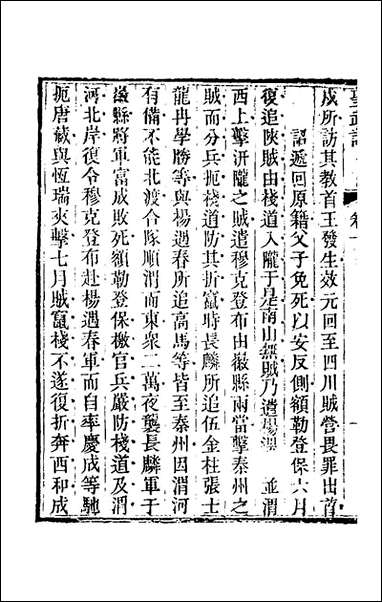 聖武記　卷十
戍所訪其教首王發生效元回至四川賊營畏罪出首
詔遞回原籍父子免死以安反側額勒登保六月
復追陝賊由棧道入隴于是南山無賊乃遣楊遇　並渭
西上擊汧隴之賊遣穆克登布由徽縣兩當擊秦州之
賊而分兵扼棧道防其折竄時長麟所追伍金柱張士
龍冉學勝等與楊遇春所追高馬等皆至秦州因渭河
有備不能北渡合隊順渭而東衆二萬夜襲長麟軍于
徽縣將軍富成敗死額勒登保檄官兵嚴防棧道及渭
河北岸復令穆克登布赴楊遇春軍而自率慶成等馳
扼唐藏與恆瑞夾擊七月賊竄棧不遂復折奔西和成